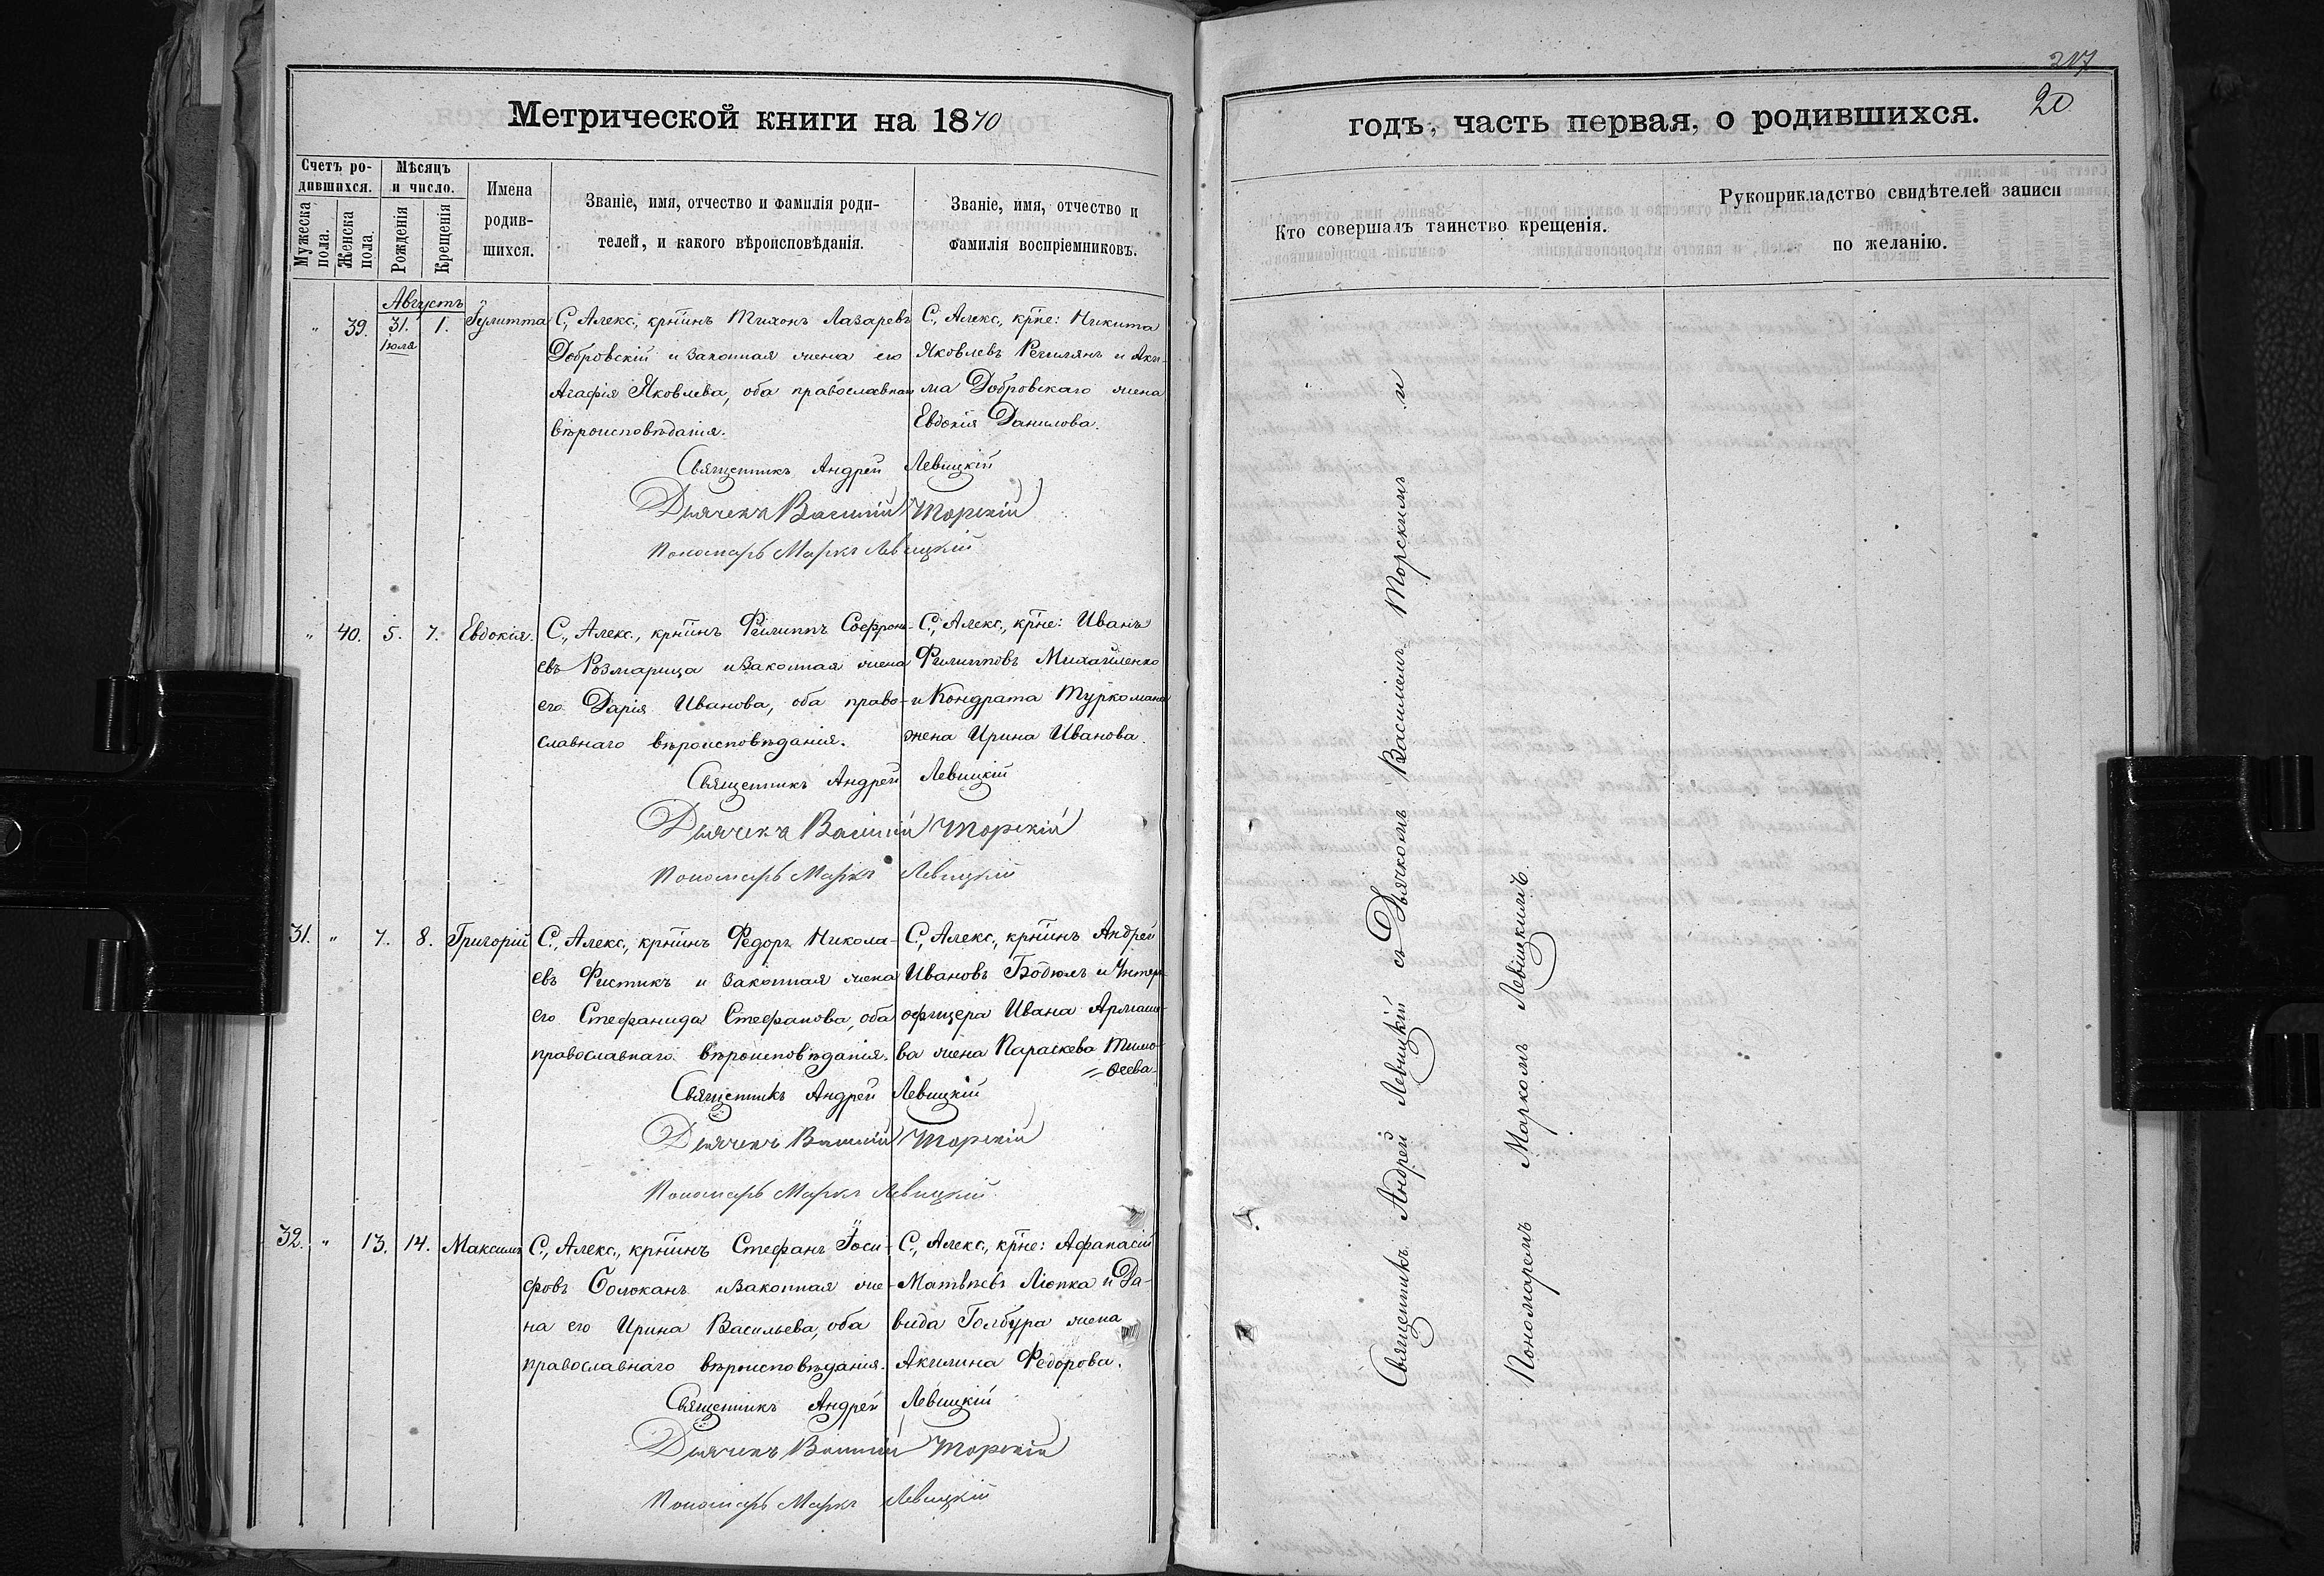 Метрической книги на 1870
Счетъ ро-
дившихся.
Мужеска
пола.
Женска
пола.
Мѣсяцъ
и число.
Рожденія
Крещенія
Имена
родив-
шихся.
Званіе, имя, отчество и фамилія роди-
телей, и какого вѣроисповѣданія.
Званіе, имя, отчество и
фамилія воспріемниковъ.
Августъ
" 39. 31. 1. Іулитта
Іюля
С., Алекс., крнинъ Тихонъ Лазаревъ
Добровскій и законная жена его
Агафія Яковлева, оба православнаго
вѣроисповѣданія.
С., Алекс., крне: Никита
Яковлевъ и Аки-
ма Добровскаго жена
Евдокія Данилова.
Священникъ Андрей Левицкій
Дьячекъ Василій Торскій
Пономарь Маркъ Левицкій
" 40. 5. 7. Евдокія.
С., Алекс., крнинъ Филиппъ Софроні-
евъ Розмарица и законная жена
его Дарія Иванова, оба право-
славнаго вѣроисповѣданія.
С., Алекс., крне: Иванъ
Филипповъ Михайленко
и Кондрата Туркомана
жена Ирина Иванова.
Священникъ Андрей Левицкій
Дьячекъ Василій Торскій
Пономарь Маркъ Левицкій
31. " 7. 8. Григорій
С., Алекс., крнинъ Федоръ Никола-
евъ Фистикъ и законная жена
его Стефанида Стефанова, оба
православнаго вѣроисповѣданія.
С., Алекс., крнинъ Андрей
Ивановъ Бодюлъ и Унтеръ
офицера Ивана
ва жена Параскева Тимо-
ѳеева.
Священникъ Андрей Левицкій
Дьячекъ Василій Торскій
Пономарь Маркъ Левицкій
32. " 13. 14. Максимъ
С., Алекс., крнинъ Стефанъ Іоси-
фовъ Солоканъ и законная же-
на его Ирина Васильева, оба
православнаго вѣроисповѣданія.
С., Алекс., крне: Афанасій
Матвѣевъ Люпка и Да-
вида Голбура жена
Акилина Федорова.
Священникъ Андрей Левицкій
Дьячекъ Василій Торскій
Пономарь Маркъ Левицкій
217
20
годъ, часть первая, о родившихся.
Кто совершалъ таинство крещенія.
Рукоприкладство свидѣтелей записи
по желанію.
Священникъ Андрей Левицкій съ Дьячкомъ Василіемъ Торскимъ и
Пономаремъ Маркомъ Левицкимъ.